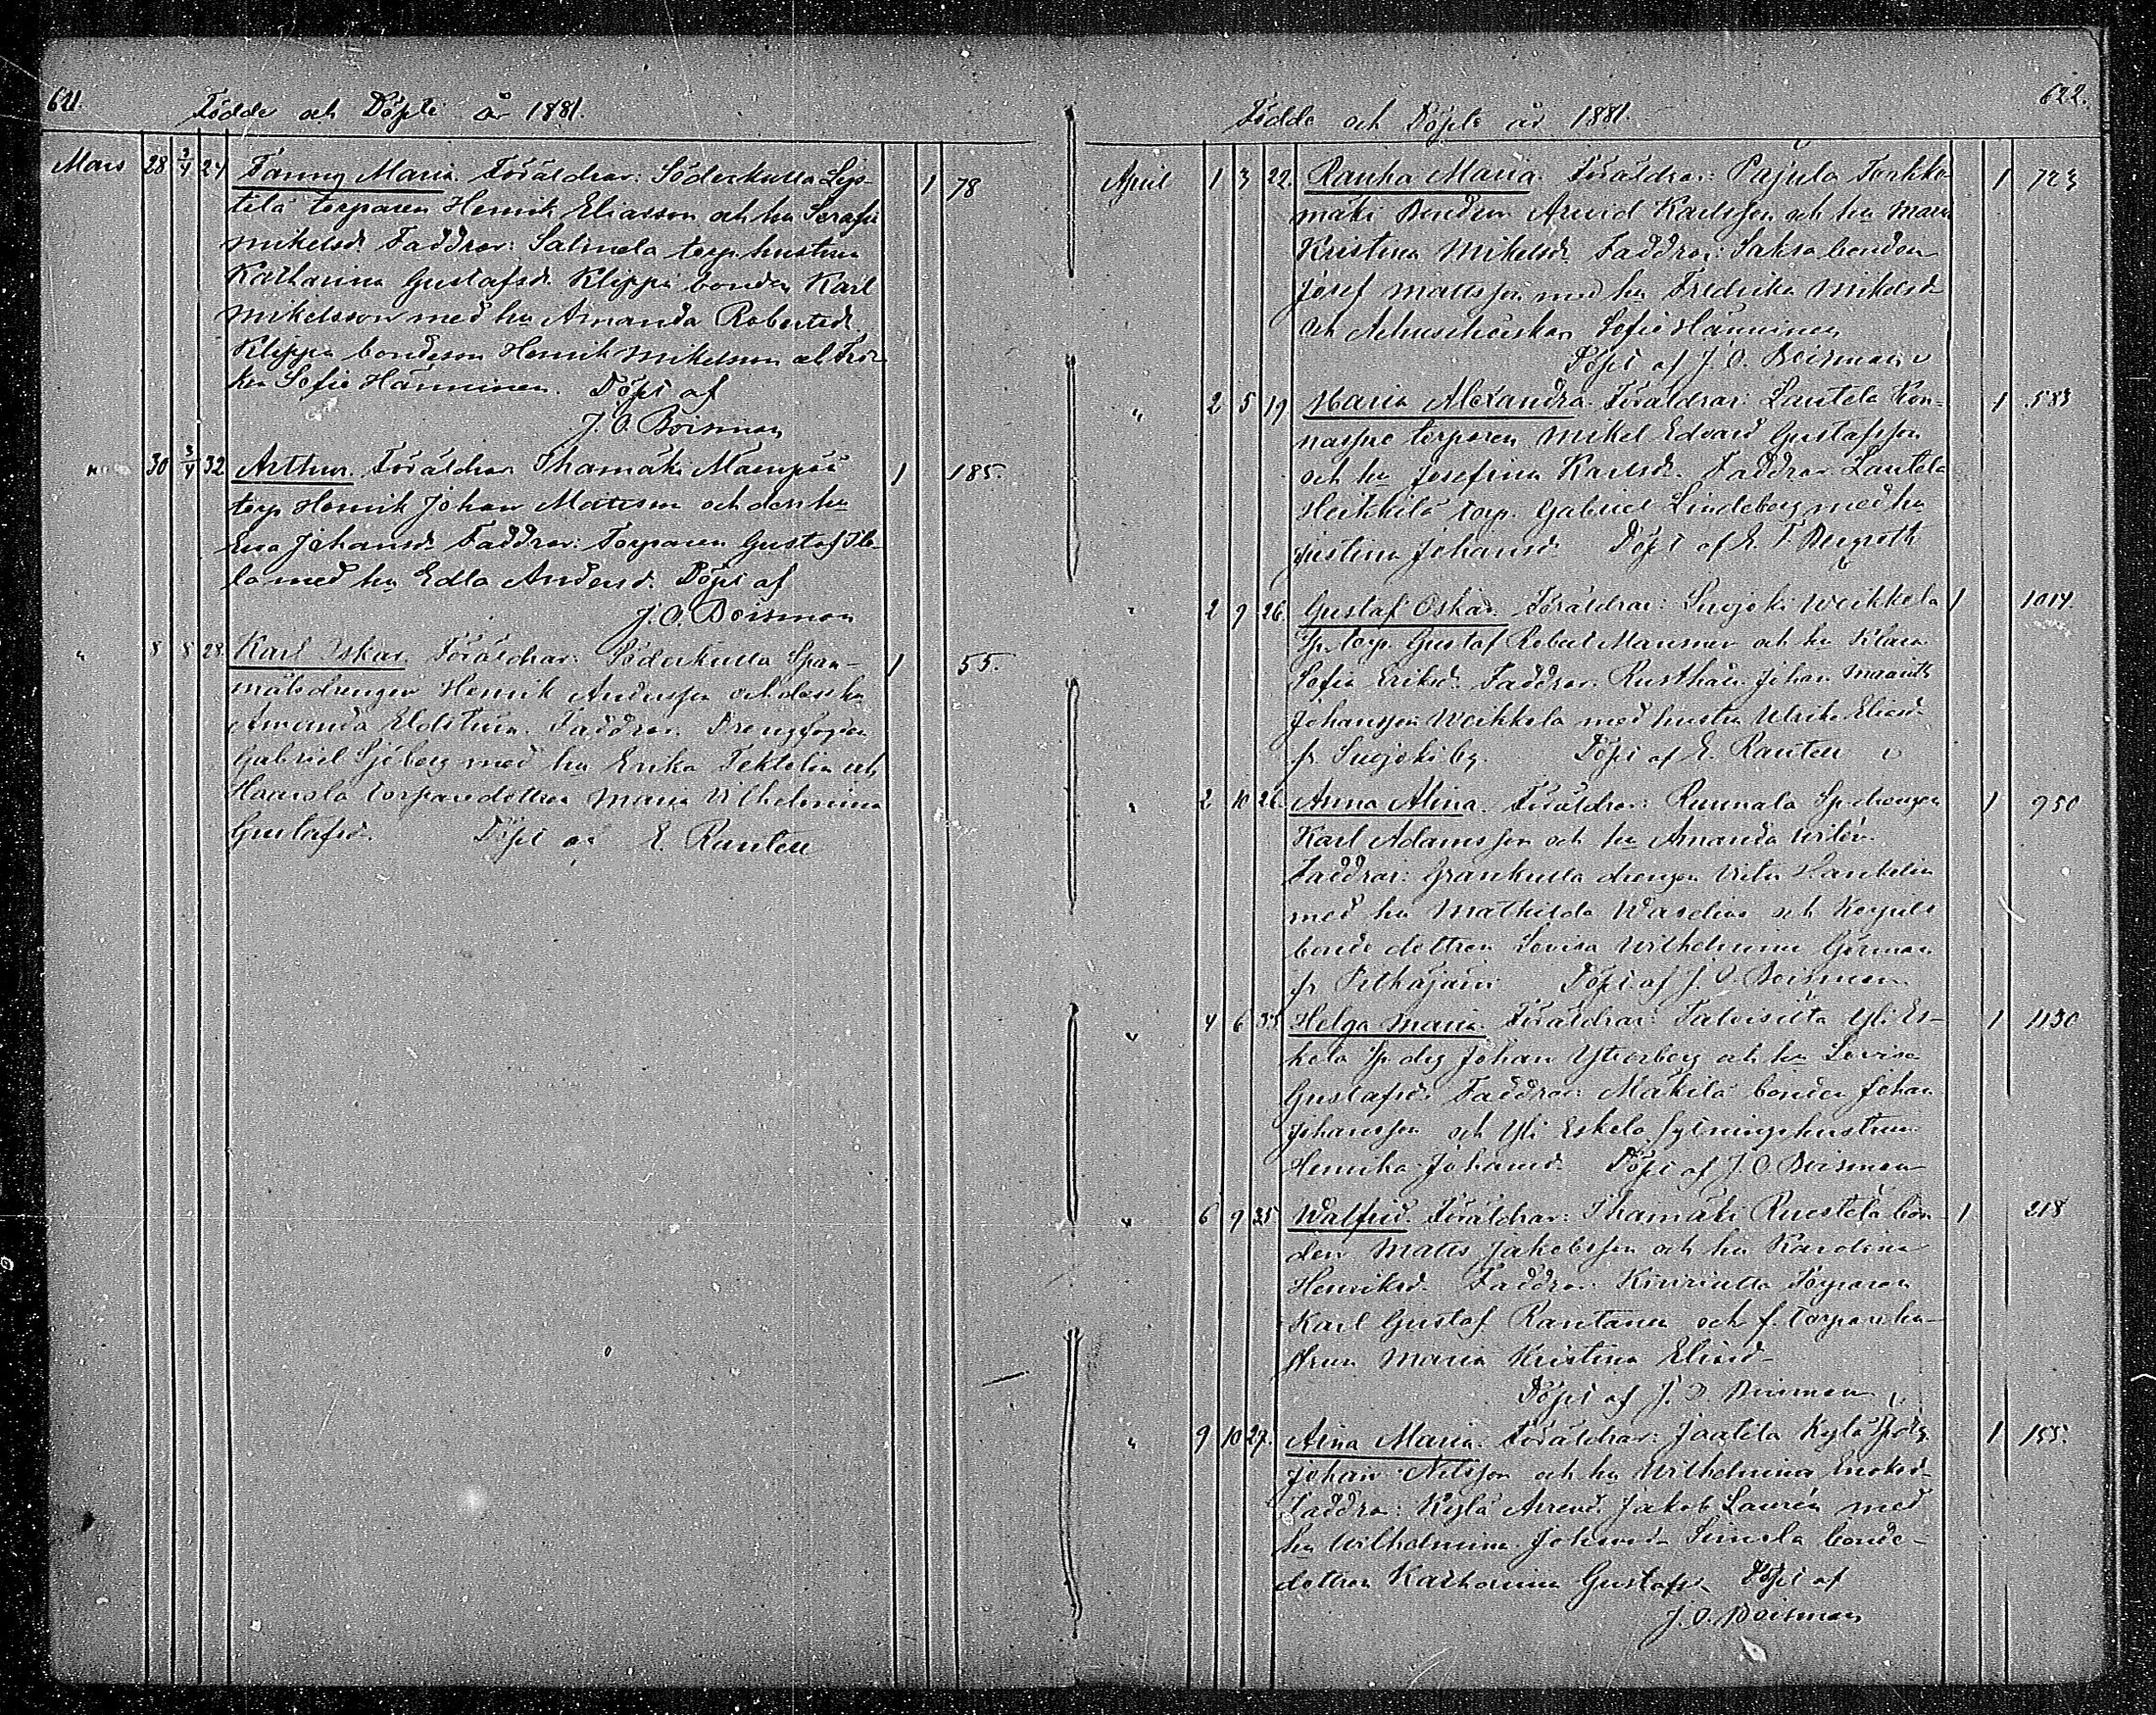 621.
Födde och Döpte år 1881.
Mars 28 3/4 24 Fanny Maria. Föräldrar: Söderkulla Lep- 1 78
tilä torparen Henrik Eliasson och hu Serafia
Mikelsdr. Faddrar: Salmela torp. hustrun
Katharina Gustafsdr. Klippi bonden Karl
Mikelsson med hu Amanda Robertsdr.
Klippin bondeson Henrik Mikelsson och
Sofie Hänninen. Döpt af
J. O. Boisman
" 30 3/4 32 Arthur. Föräldrar Ihamäki Maenpää 1 185.
torp Henrik Johan Matsson och dess hu
Eva Johansdr. Faddrar: Torparen Gustaf Ilo-
la med hu Edla Andersd. Döpt af
J. O. Boisman
" 8 8 28 Karl Oskar. Föräldrar: Söderkulla Span- 1 55.
målsdrengen Henrik Andersson och dess hu
Amanda. Faddrar. Drengfogden
Gabriel Sjöberg med hu Erika Tektolin och
Haarla torparedottren Maria Vilhelmina
Gustafsd. Döpt af E. Rantell
622.
Födda och Döpte år 1881.
April 1 3 22. Rauha Maria. Föräldrar: Pajula Torkko- 1 723
mäki Bonden Arvid Karlsson och hu Maria
Kristina Mikelsdr. Faddrar: Saksa bonden
Josef Mattsson med hu Fredrika Mikelsd.
och Sofie Hänninen
Döpt af J. O. Boisman
" 2 5 19 Maria Alexandra. Föräldrar: Lautela Kon- 1 583
torparen Mikel Edvard Gustafsson
och hu Josefina Karlsd. Faddrar Lautela
Heikkilä torp. Gabriel Lindeberg med hu
Justina Johansd. Döpt af E. F. Bergroth
" 2 9 26. Gustaf Oskar. Föräldrar: Suojoki Weikkela 1 1014.
Sp. torp. Gustaf Robert och hu Klara
Sofia Eriksd. Faddrar. Rusthåll. Johan
Johansson Weikkela med hustru Ulrika Eliasd.
fr. Suojoki by. Döpt af E. Rantell
" 2 10 26. Anna Alina. Föräldrar: Runnala Sp. drengen 1 950
Karl Adamsson och hu Amanda Wilén.
Faddrar: Grankulla drengen
med hu Mathilda Waselius och
bonde dottren Lovisa Wilhelmina
fr. Pitkäjärvi Döpt af J. O. Boisman
" 4 6 35 Helga Maria. Föräldrar: Talvisilta Yli Es- 1 1130
kola Sp. drg Johan Ytterberg och hu Lovisa
Gustafsd. Faddrar: Mäkilä bonden Johan
Johansson och Yli Eskola sytningshustrun
Henrika Johansd. Döpt af J. O. Boisman
" 6 9 25 Walfrid. Föräldrar: Ihamäki Ruostela bon- 1 218
den Matts Jakobsson och hu Karolina
Henriksd. Faddrar: Torparen
Karl Gustaf Rantanen och f. torparehu-
strun Maria Kristina Eliasd.
Döpt af J. O. Boisman
" 9 10 27. Aina Maria. Föräldrar: Jaatila Kylä Sp. drg. 1 155.
Johan Nilsson och hu Wilhelmina Enoksd.
Faddrar: Kylä Arrend. Jakob Laurén med
hu Wilhelmina Johansd. Simola bonde-
dottren Katharina Gustafsd. Döpt af
J. O. Boisman